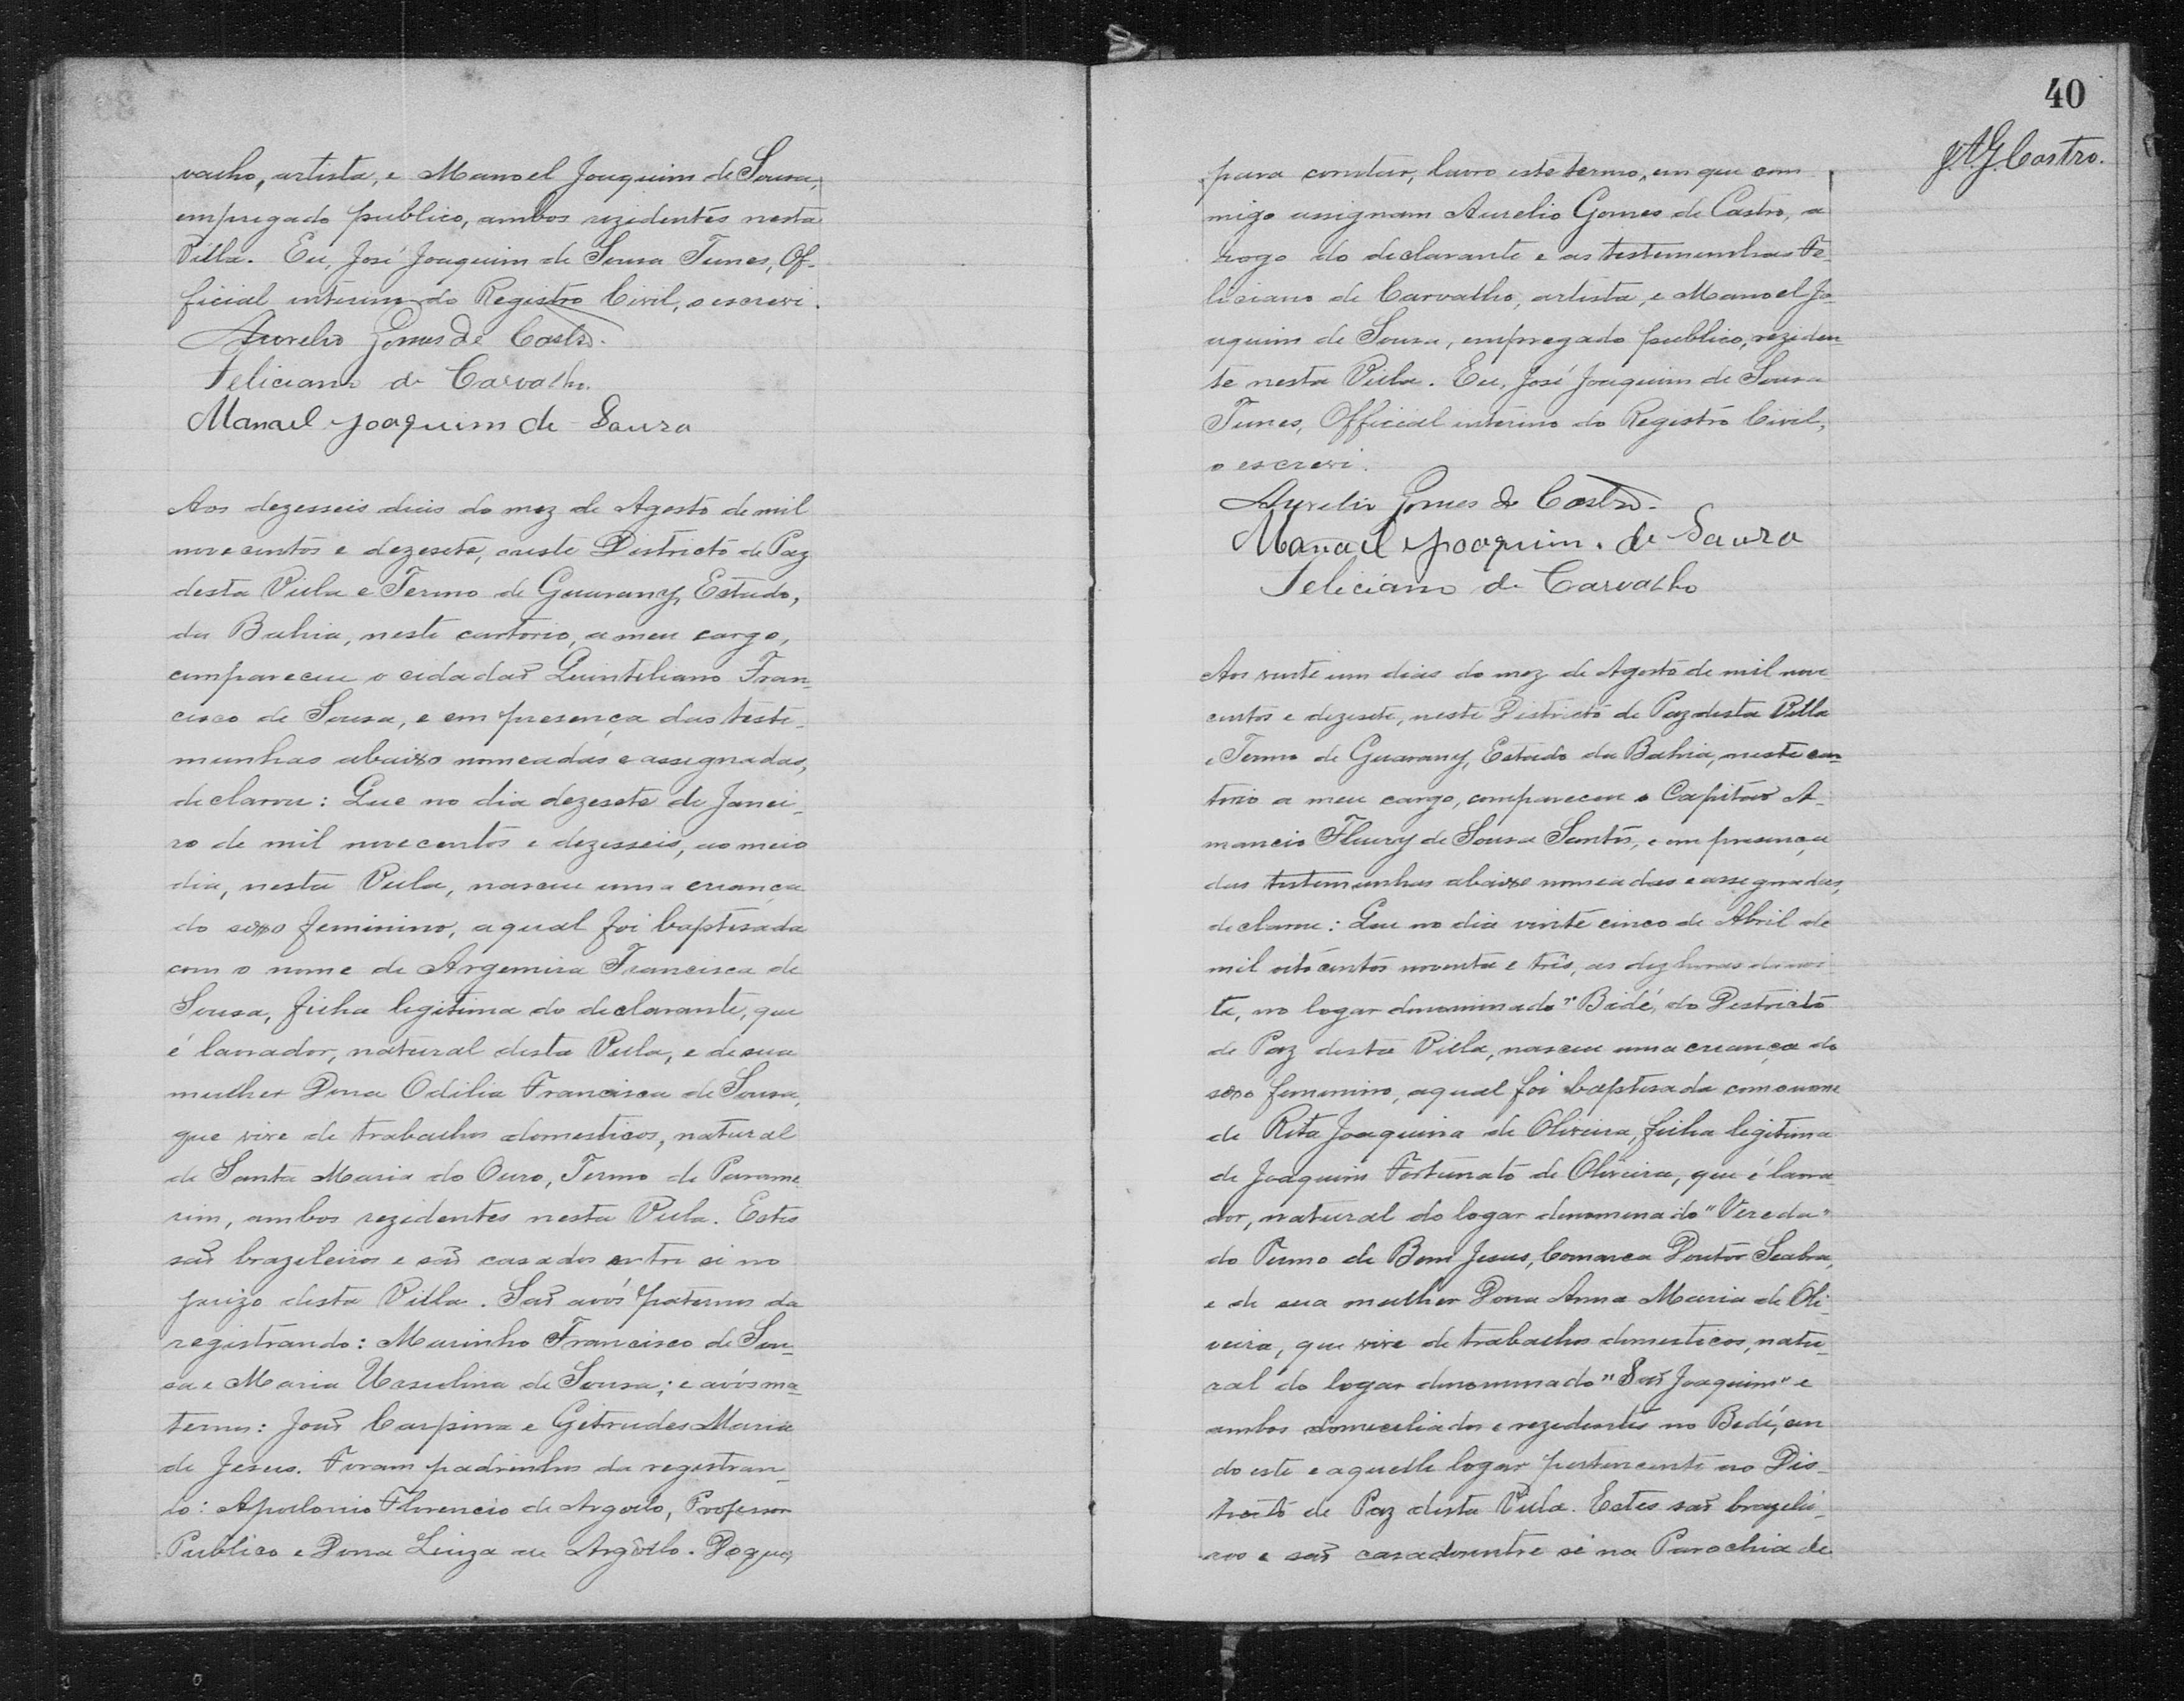 valho, artista, e Manoel Joaquim de Sousa,
empregado publico, ambos rezidentes nesta
Villa. Eu, José Joaquim de Sousa Tunes, Of-
ficial interino do Registro Civil, o escrevi.
Aurelio Gomes de Castro.
Feliciano de Carvalho.
Manoel Joaquim de Souza
Aos dezesseis dias do mez de Agosto de mil
novecentos e dezesete, neste Districto de Paz
desta Villa e Termo de Guarany, Estado,
da Bahia, neste cartorio, a meu cargo,
compareceu o cidadaõ Quintiliano Fran-
cisco de Sousa, e em presença das teste-
munhas abaixo nomeadas e assignadas,
declarou: Que no dia dezesete de Janei-
ro de mil novecentos e dezesseis, ao meio
dia, nesta Villa, nasceu uma criança
do sexo feminino, a qual foi baptisada
com o nome de Argemira Francisca de
Sousa, filha legitima do declarante, que
é lavrador, natural desta Villa, e de sua
mulher Dona Odilia Francisca de Sousa,
que vive de trabalhos domesticos, natural
de Santa Maria do Ouro, Termo de Parame-
rim, ambos rezidentes nesta Villa. Estes
saõ brazileiros e saõ casados entre si no
juizo desta Villa. Saõ avós paternos da
registrando: Marinho Francisco de Sou-
sa e Maria Ursulina de Sousa; e avós ma-
ternos: Joaõ Carpina e Getrudes Maria
de Jesus. Foram padrinhos da registran-
do: Apolonio Florencio de Argollo, Professor
Publico e Dona Luiza de Argôllo. Do que,
40
J.A.G. Castro.
para constar, lavro este termo, em que com
migo assignam Aurelio Gomes de Castro, a
rogo do declarante e as testemunhas Fe-
liciano de Carvalho, artista, e Manoel Jo-
aquim de Sousa, empregado publico, reziden-
te nesta Villa. Eu, José Joaquim de Sousa
Tunes, Official interino do Registro Civil,
o escrevi.
Aurelio Gomes de Castro.
Manoel Joaquim de Souza
Feliciano de Carvalho
Aos vinte um dias do mez de Agosto de mil nove
centos e dezesete, neste Districto de Paz desta Villa
e Termo de Guarany, Estado da Bahia, neste car
torio a meu cargo, compareceu o Capitaõ A-
mancio Fleury de Sousa Santos, e em presença
das testemunhas abaixo nomeadas e assignadas,
declarou: Que no dia vinte cinco de Abril de
mil oitocentos noventa e três, as dez horas da noi-
te, no logar denominado "Bidé, do Districto
de Paz desta Villa, nasceu uma criança do
sexo femenino, a qual foi baptisada com o nome
de Rita Joaquina de Oliveira, filha legitima
de Joaquim Fortunato de Oliveira, que é lavra-
dor, natural do logar denomenado "Vereda"
do Termo de Bom Jesus, Comarca Doutor Seabra,
e de sua mulher Dona Anna Maria de Oli-
veira, que vive de trabalhos domesticos, natu-
ral do logar denominado "Saõ Joaquim" e
ambos domeciliados e rezidentes no Bedé, cen
do este e aquelle logar pertencente ao Dis-
tricto de Paz desta Villa. Estes saõ brazilei-
ros e saõ casados entre si na Parochia de